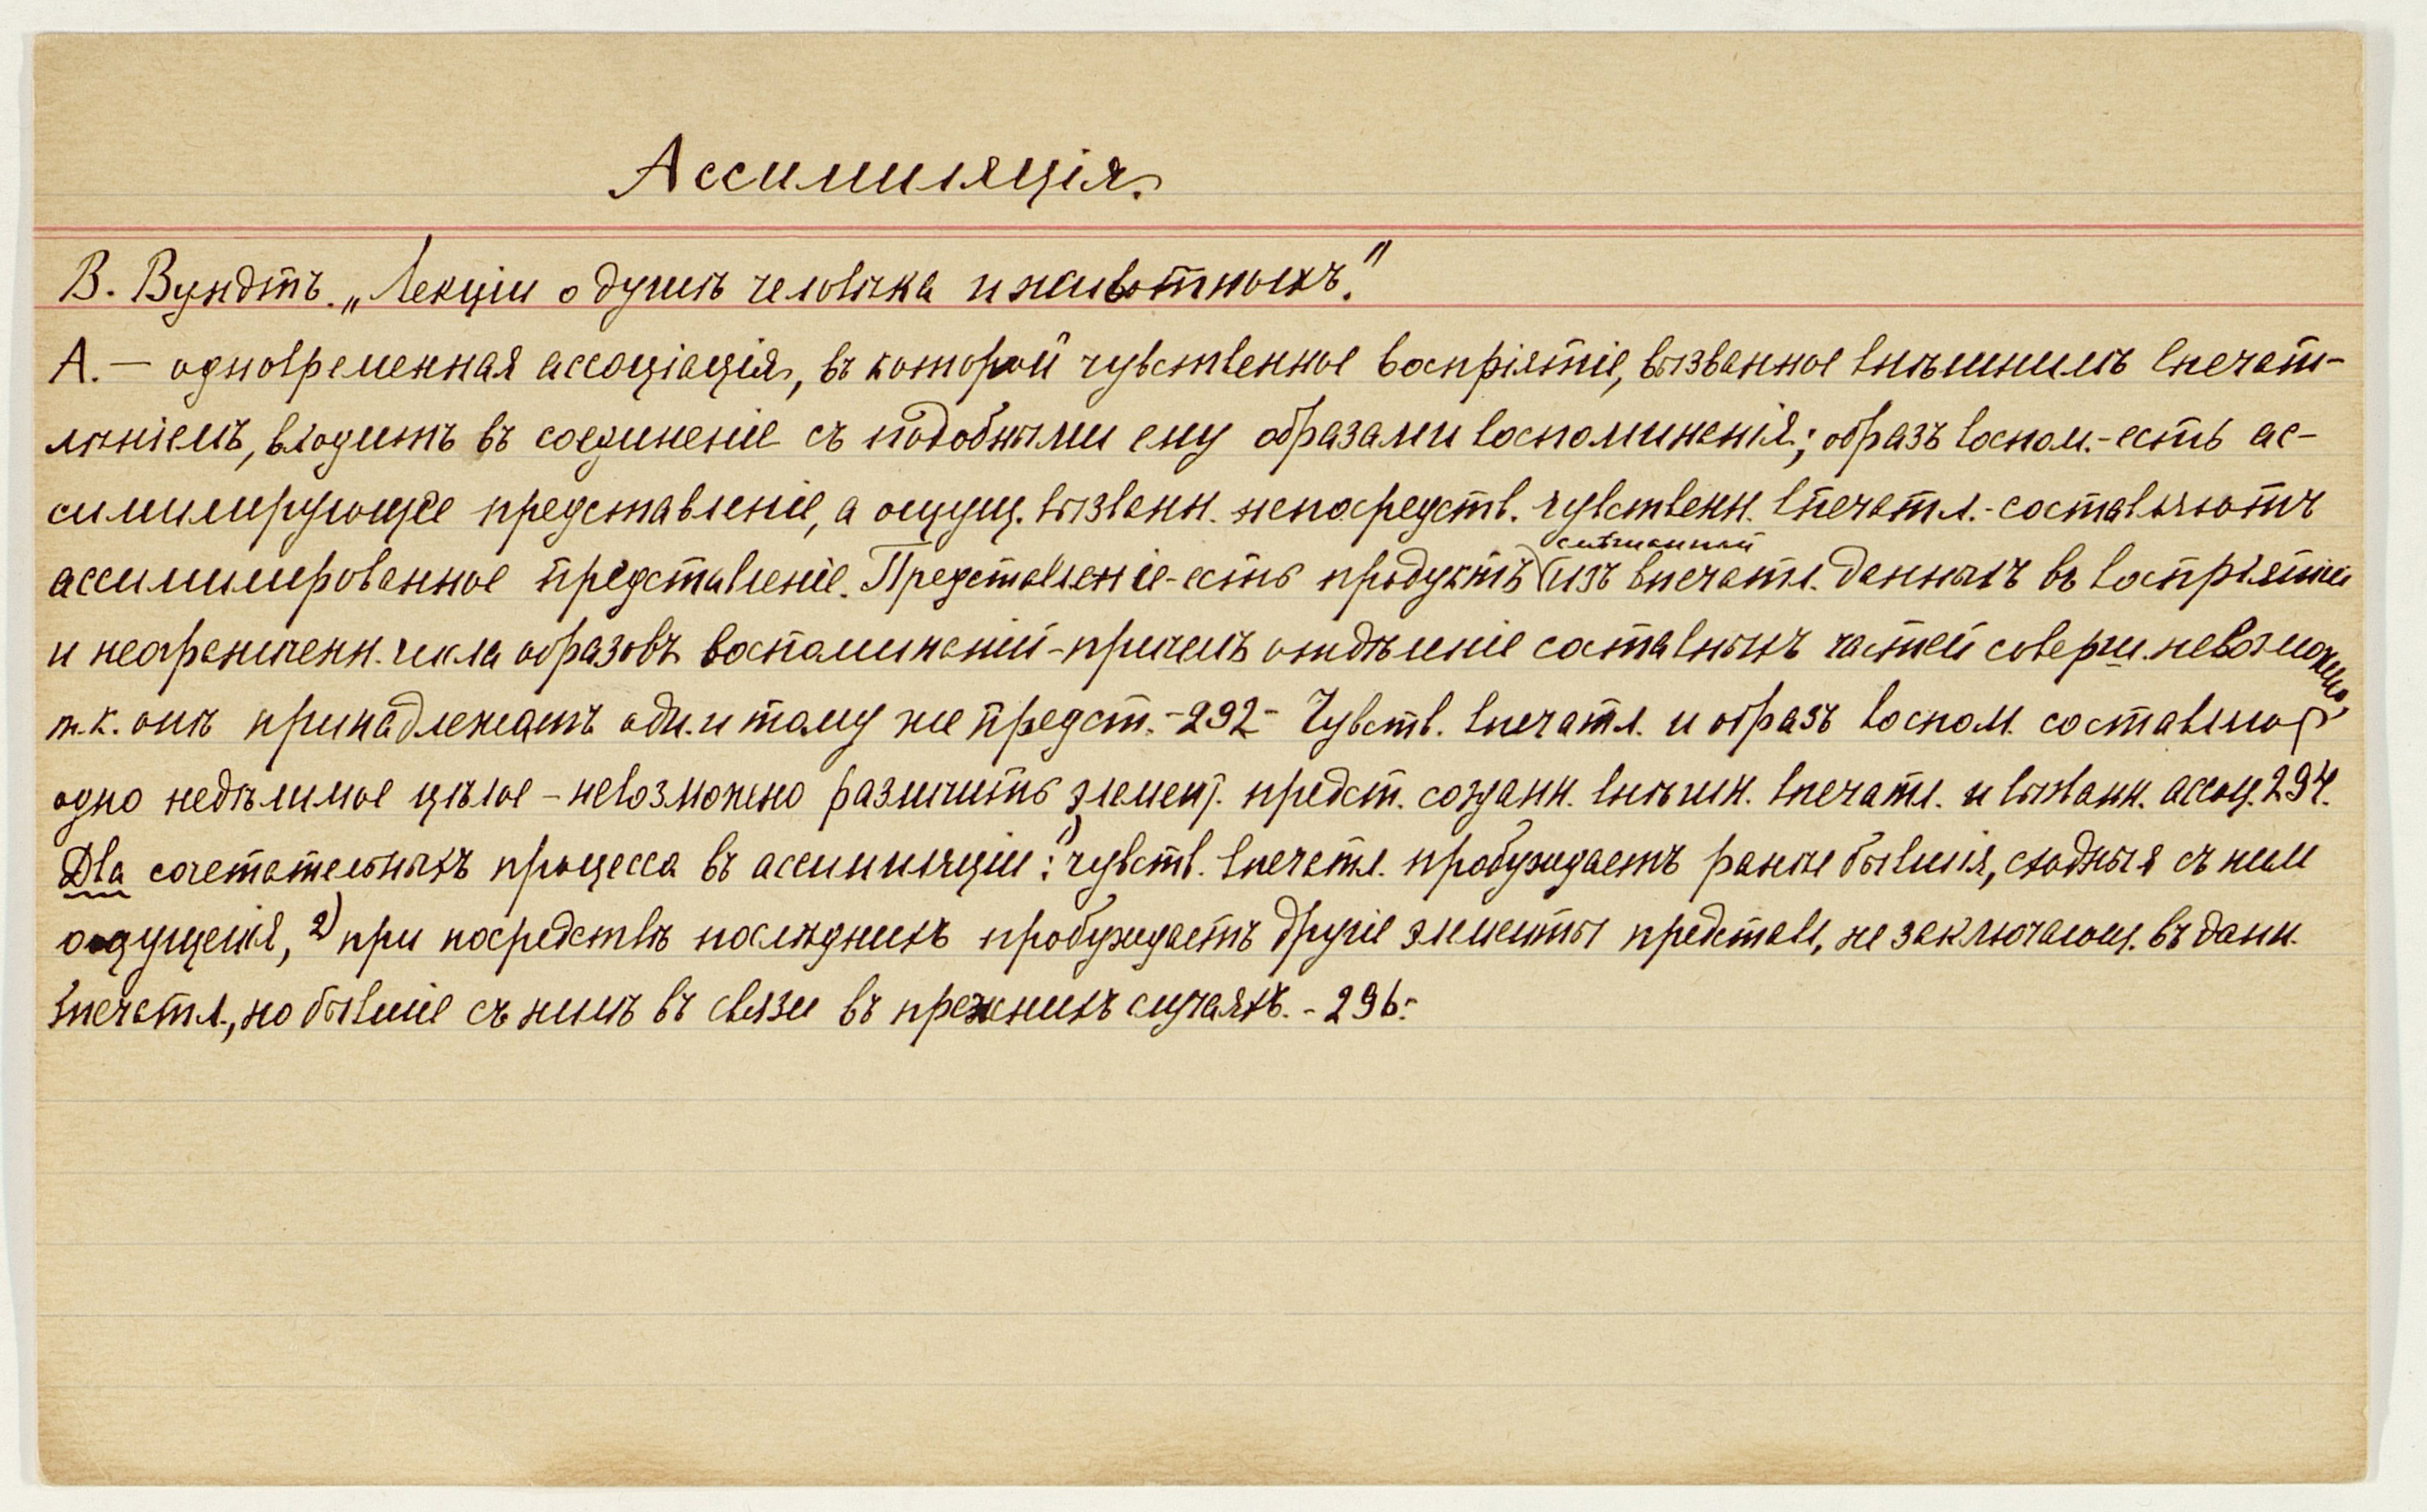 Ассимиляція.
В. Вундтъ. „Лекціи о душѣ человѣка и животныхъ."
А. — одновременная ассоціація, въ которой чувственное воспріятіе, вызванное внѣшнимъ впечат-
лѣніемъ, входитъ въ соединеніе съ подобными ему образами воспоминанія; образъ воспом. - есть ас-
симилирующее представленіе, а ощущ. вызванн. непосредств. чувственн. впечатл. - составляютъ
ассимилированное представленіе. Представленіе - есть продуктъ смѣшанный изъ впечатл. данныхъ въ воспріятіи
и неограниченн. числа образовъ воспоминаній - причемъ отдѣленіе составныхъ частей соверш. невозможно,
т.к. онѣ принадлежатъ одн. и тому же предст. - 292 - Чувств. впечатл. и образъ воспом. составляют
одно недѣлимое цѣлое - невозможно различить элемент. предст. созданн. внѣшн. впечатл. и вызванн. ассоц. 294.
Два сочетательныхъ процесса въ ассимиляціи: 1) чувств. впечатл. пробуждаетъ ранѣе бывшія, сходныя съ ним
ощущенія, 2) при посредствѣ послѣднихъ пробуждаетъ другіе элементы представл, не заключающ. въ данн.
впечатл., но бывшіе съ нимъ въ связи въ прежнихъ случаяхъ. - 296 -